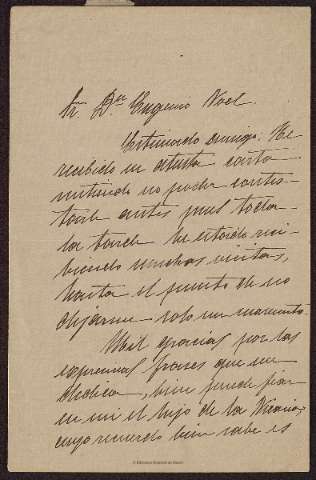 Sr. Dn. Eugenio Noel.
Estimado amigo: He
recibido su atenta carta
sintiendo no poder contes-
tarle antes pues toda
la tarde he estado reci-
biendo muchas visitas,
hasta el punto de no
dejarme solo un momento.
Mil gracias por las
expresivas frases que me
dedica, bien puede fiar
en mi el hijo de la
cuyo recuerdo bien sabe es